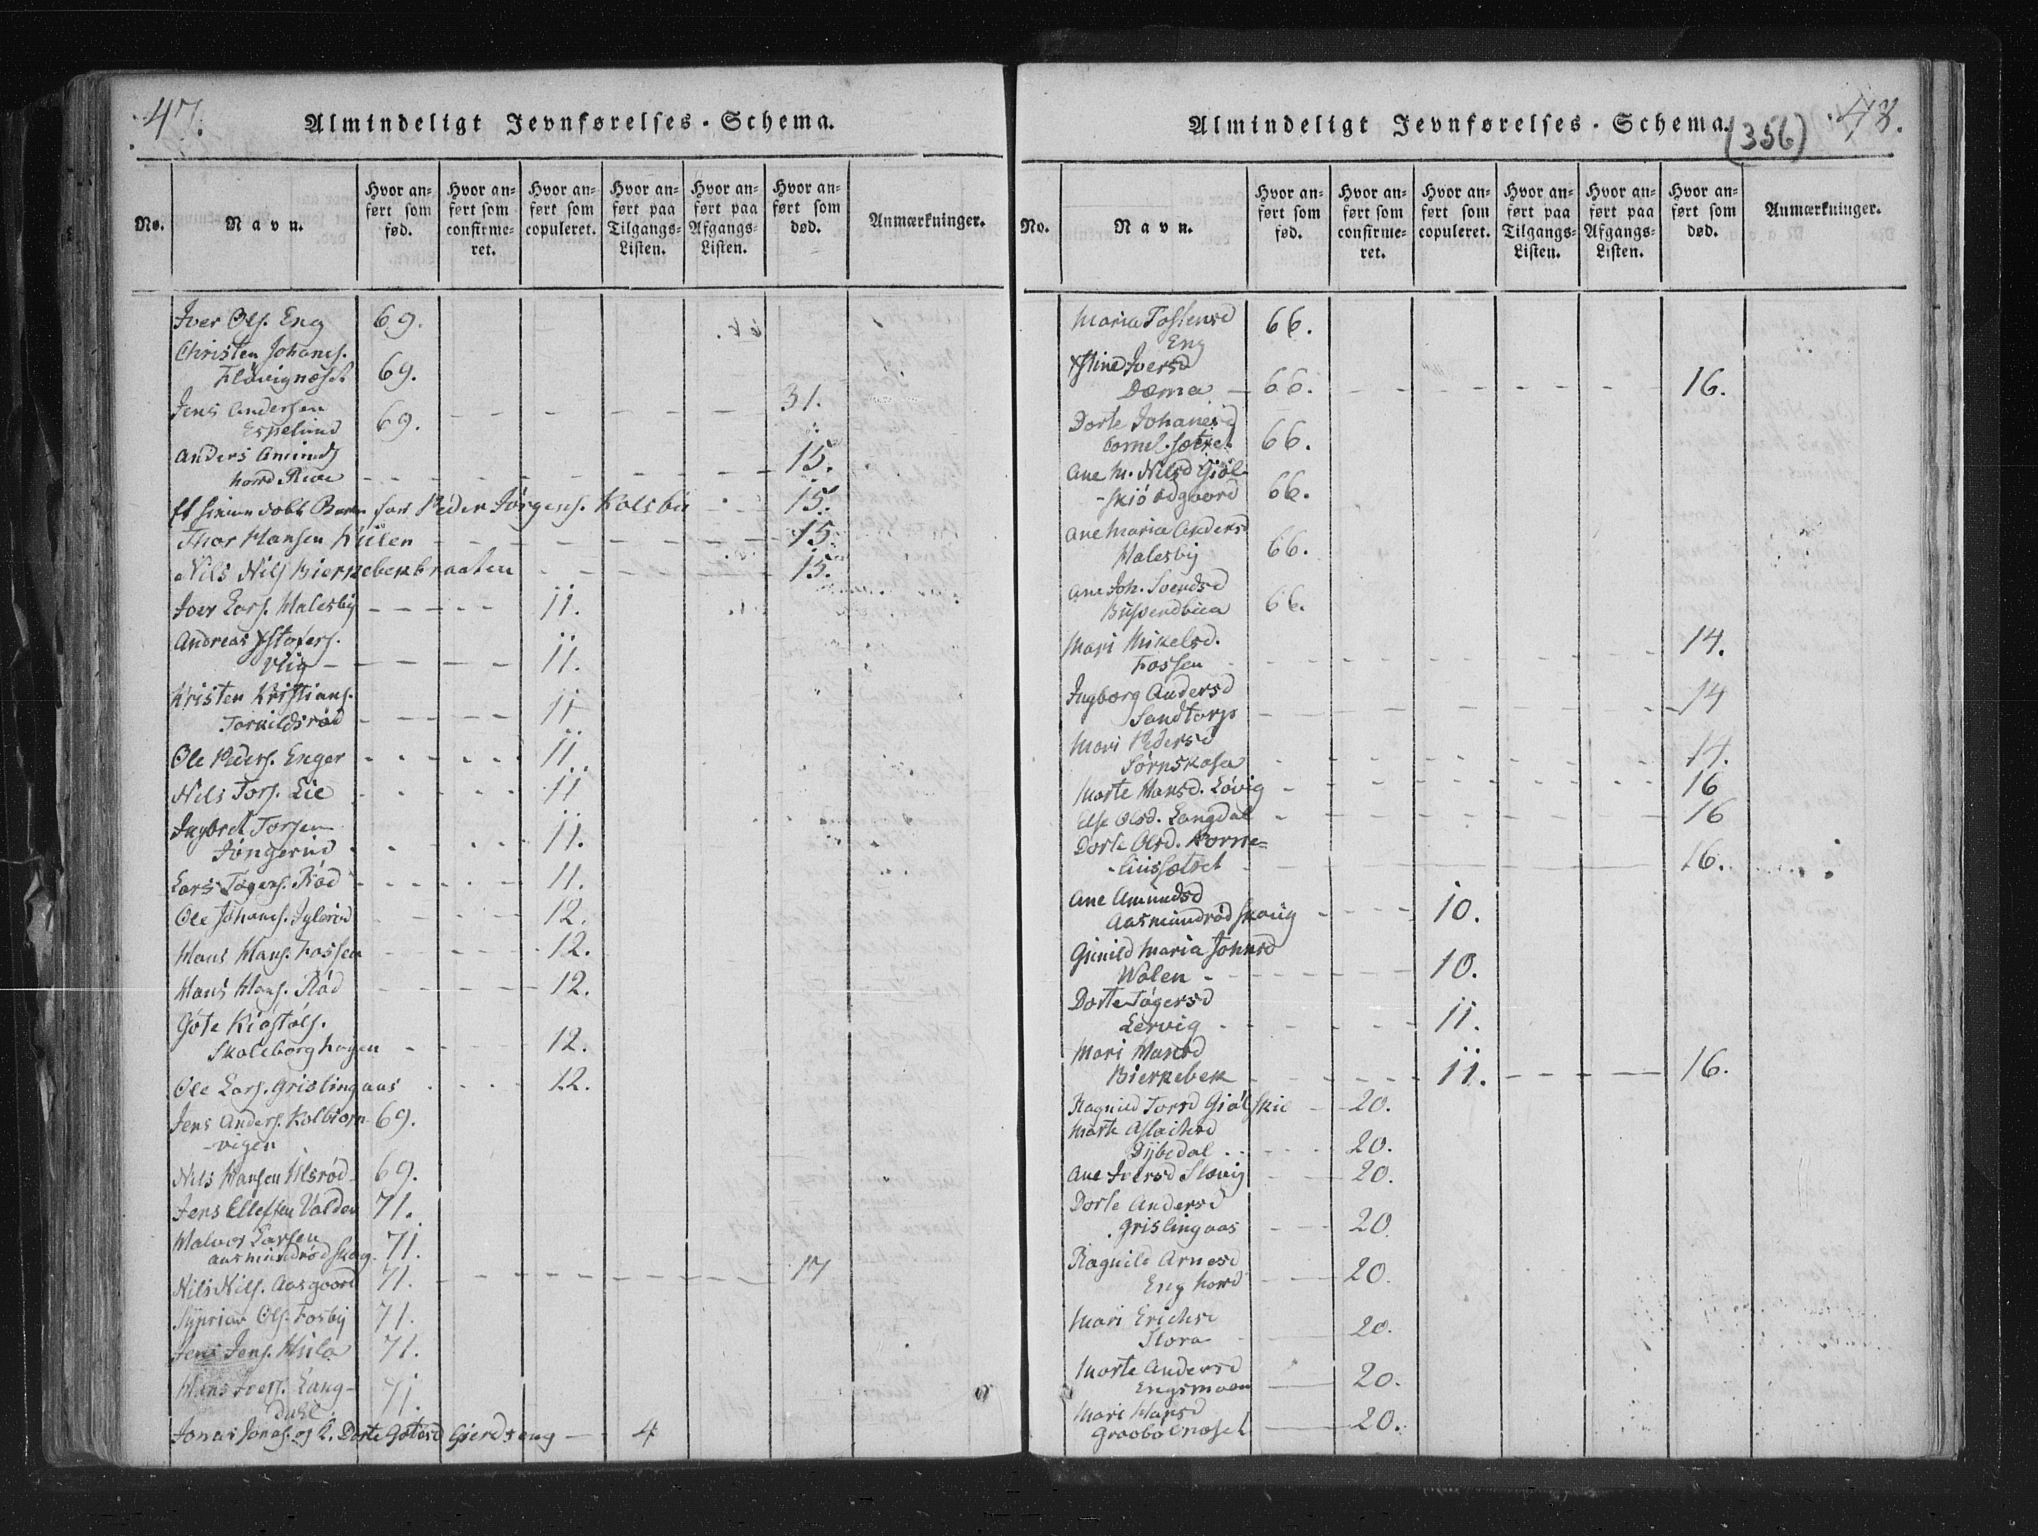 47.
Almindeligt Jevnførelses-Schema.
No.
Navn.
Hvor anført som fød.
Hvor anført som confirmeret.
Hvor anført som copuleret.
Hvor anført paa Tilgangs-Listen.
Hvor anført paa Afgangs-Listen.
Hvor anført som død.
Anmærkninger.
Iver Ols. Eng 69.
Christen Johans.
69.
Jens Andersen
Espelund 69. 31.
Anders Amunds
15.
Peder Jørgens. Kolsbu 15.
Thor Hansen 15.
Nils Nils Bierkebekbraaten 15.
Iver Lars. Halesby 11.
Andreas
11.
Kristen Kristians.
Torkildsrød 11
Ole Peders. Enger 11
Nils Tors. Lie 11
Ingbret Torsen
11.
Lars Tøgers. Rød 11.
Ole Johans. 12.
Hans Hans. Fossen 12.
Hans Hans. Rød 12.
Gote Kiøstøls.
Skaleborghagen 12.
Ole Lars. Grislingaas 12.
Jens Anders. Kolbiørn- 69.
-vigen
Nils Hansen Ulsrød 69.
Jens Ellefsen Valden 71.
Halvor Larsen
Aasmundrød Skog 71.
Nils Nils. Aasgaard 71. 17
Syprian Ols. Fosby 71.
Jens Jens. Hula 71.
Hans Ivers. Lang-
dahl 71.
Jonas Jonas. og K. Dorte Gotesd Gierdseng 4
48.
(356)
Almindeligt Jevnførelses-Schema.
No.
Navn.
Hvor anført som fød.
Hvor anført som confirmeret.
Hvor anført som copuleret.
Hvor anført paa Tilgangs-Listen.
Hvor anført paa Afgangs-Listen.
Hvor anført som død.
Anmærkninger.
Maria Tostensd
Eng 66.
Iversd
66. 16.
Dorte Johanesd
Cornel. sætret 66.
Ane M. Nilsd Giøl-
-skiø ødgaard 66.
Ane Maria Andersd
Halesby 66.
Ane Joh. Svendsd
66.
Mari Mikelsd.
Fossen 14.
Ingborg Andersd
Sandtorp 14
Mari Pedersd
14.
Morte Hansd. Løvig 16
Else Olsd. Langdal 16
Dorte Olsd. Korne-
-liussætret 16.
Ane Amundsd
Aasmundrød Skoug 10.
Gunild Maria Johnsd
Wolen 10.
Dorte Tøgersd
Lervig 11.
Mari Hansd
Bierkebek 11. 16.
Ragnild Torsd Giølskie 20.
Morte Aslachsd
Dybedal 20.
Ane Iversd 20.
Dorte Andersd
Grislingaas 20.
Ragnild Arnesd
Eng 20.
Mari Erichsd
Stora 20.
Morte Andersd
Engsmoen 20.
Mari Hansd
Graabølnæset 20.